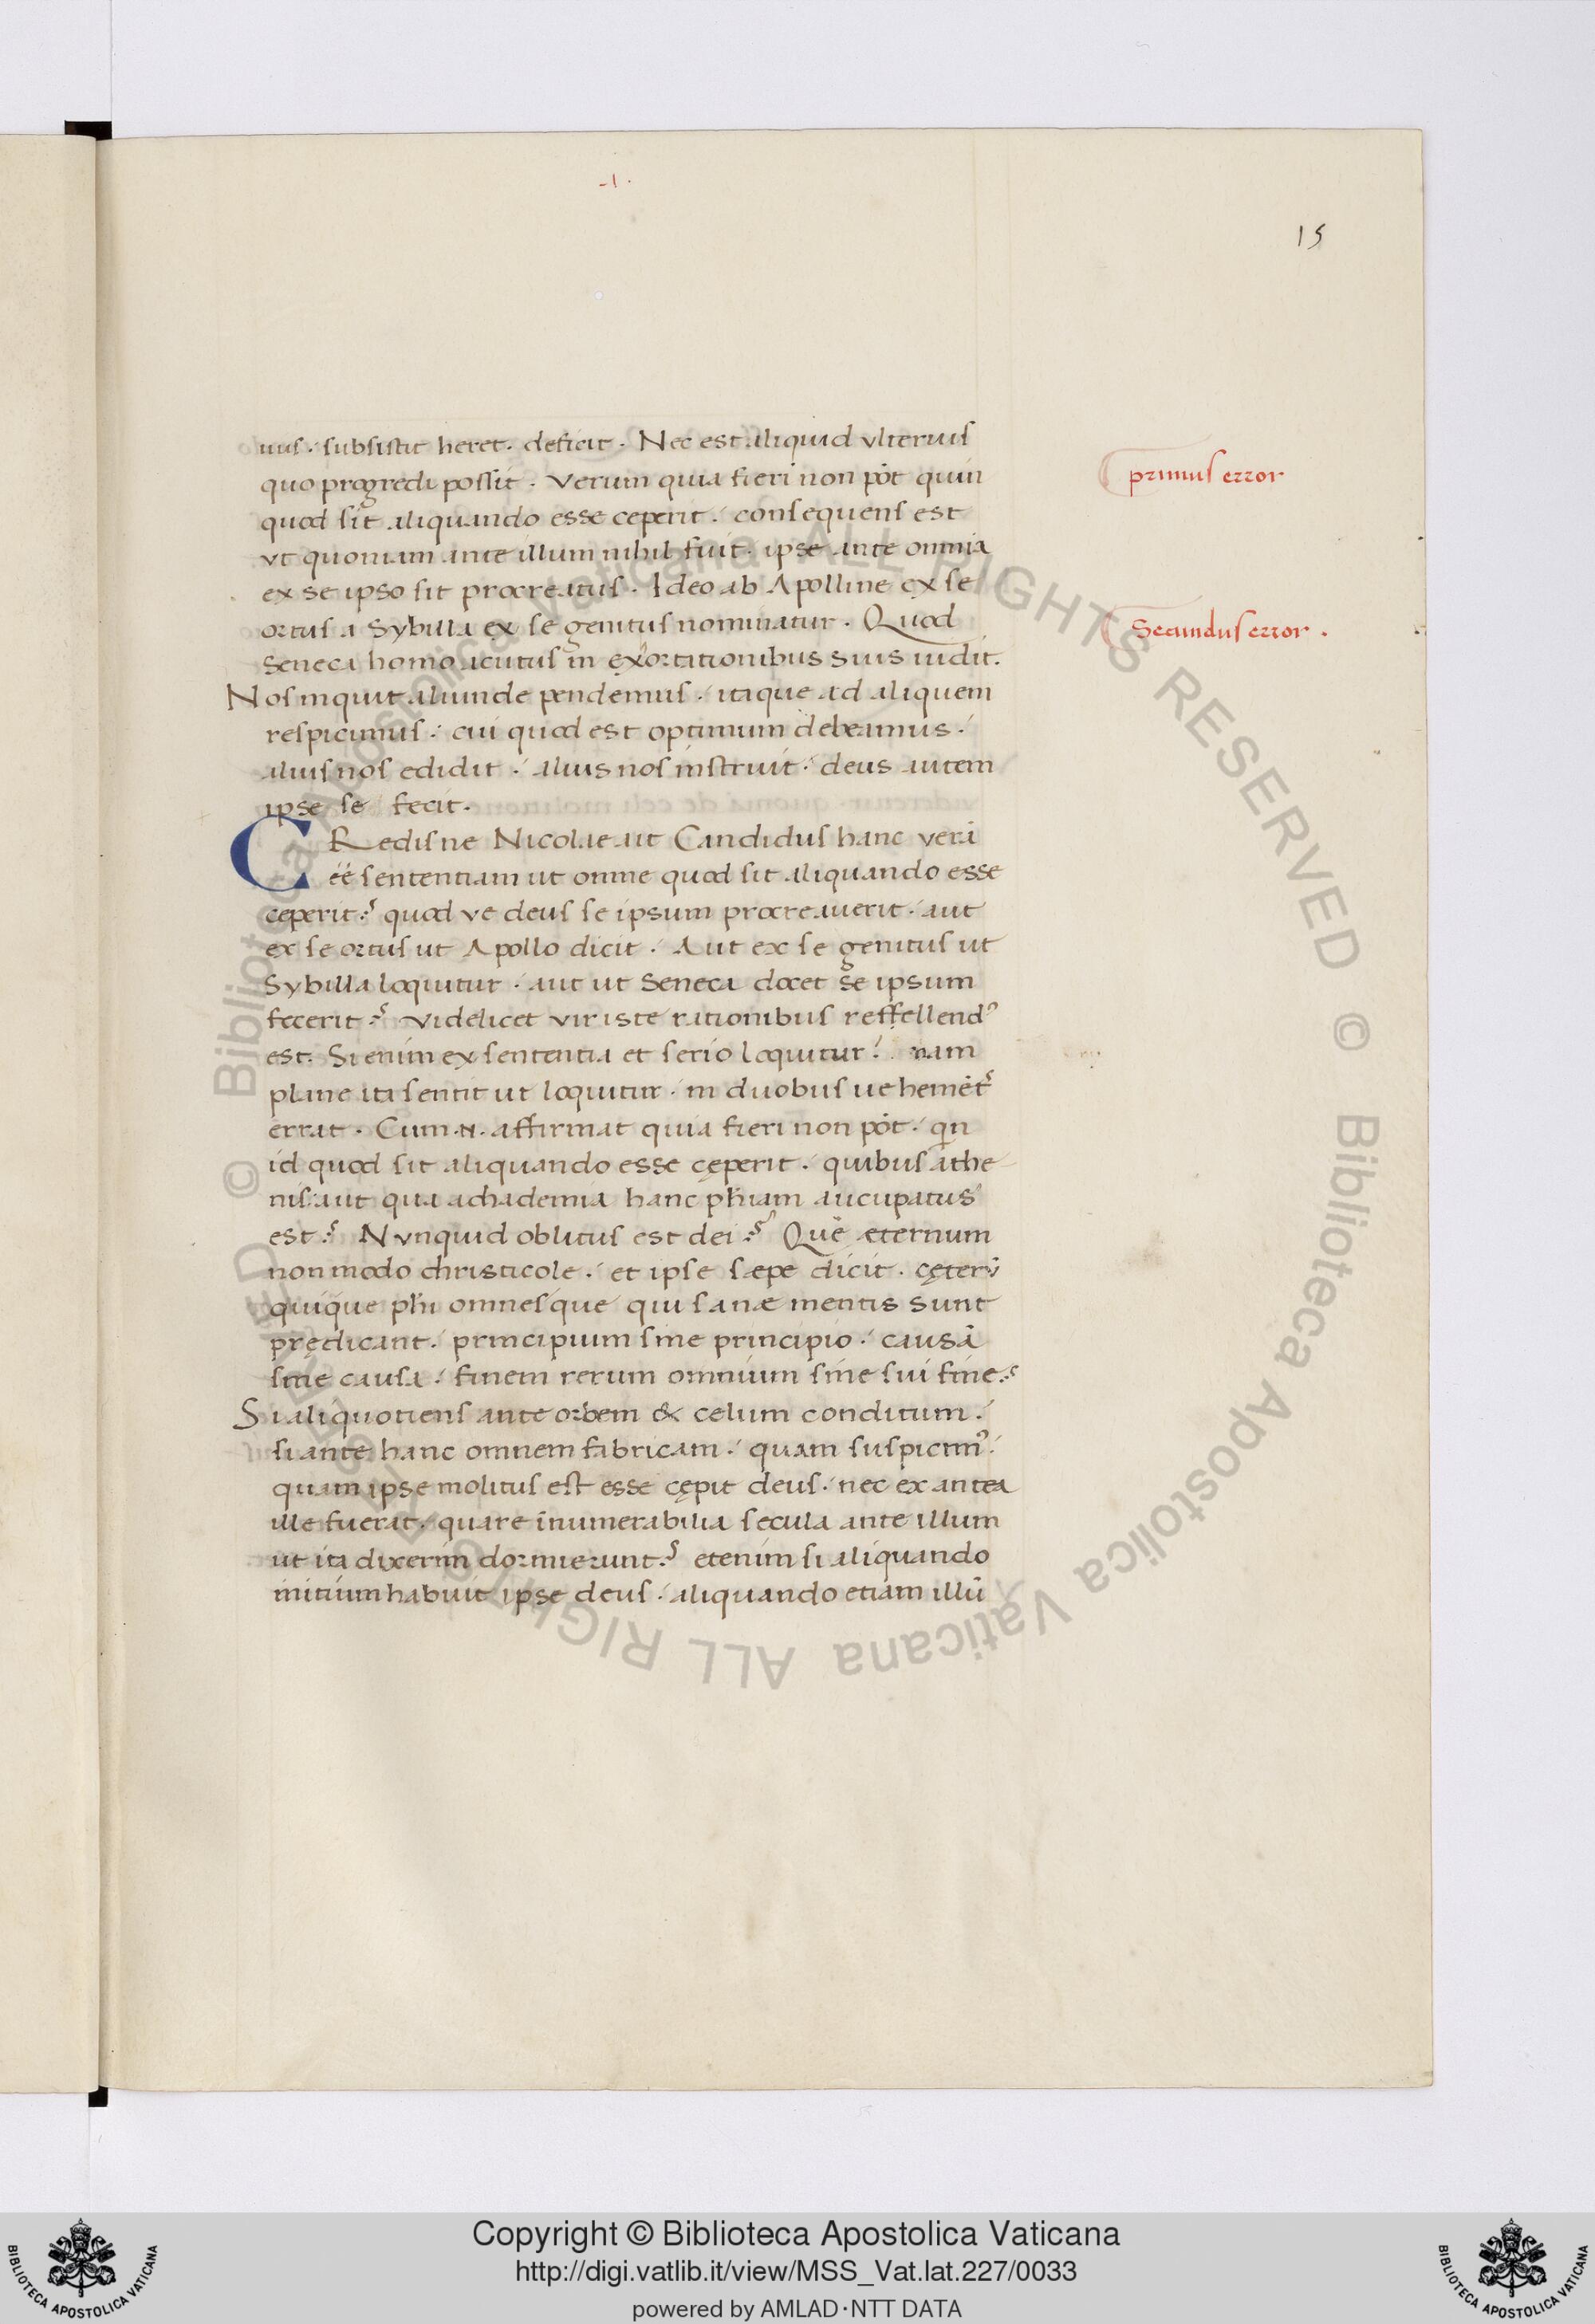 .I.
15
uus. subsistit heret. deficit. Nec est aliquid vlterius
quo progredi possit. Verum quia fieri non pōt quin
quod sit aliquando esse ceperit. consequens est
vt quoniam ante illum nihil fuit. ipse ante omnia
ex se ipso sit procreatus. Ideo ab Apolline ex se
ortus a Sybilla ex se genitus nominatur. Quod
Seneca homo acutus in exortationibus suis uidit.
Nos inquit aliunde pendemus. itaque ad aliquem
respicimus. cui quod est optimum debeamus.
alius nos edidit. alius nos instruit. deus autem
ipse se fecit.
CRedisne Nicolae ait Candidus hanc verā
ēē sententiam ut omne quod sit aliquando esse
ceperit? quod ve deus se ipsum procreauerit. aut
ex se ortus ut Apollo dicit. Aut ex se genitus ut
Sybilla loquitur. aut ut Seneca docet se ipsum
fecerit? Videlicet vir iste rationibus reffellendꝰ
est. Si enim ex sententia et serio loquitur. nam
plane ita sentit ut loquitur. in duobus uehemēt᷑
errat. Cum .n. affirmat quia fieri non pōt. qin
id quod sit aliquando esse cęperit. quibus athe
nis aut qua achademia hanc phiam aucupatus
est? Nunquid oblitus est dei? Quē æternum
non modo christicole. et ipse sæpe dicit. cęteri
quique phi omnesque qui sanæ mentis sunt
prędicant. principium sine principio. causā
sine causa. finem rerum omnium sine sui fine?
Si aliquotiens ante orbem & celum conditum.
si ante hanc omnem fabricam. quam suspicimꝰ.
quam ipse molitus est esse cępit deus. nec ex antea
ille fuerat. quare īnumerabilia secula ante illum
ut ita dixerim dormierunt? etenim si aliquando
initium habuit ipse deus. aliquando etiam illū
primus error
Secundus error.
Copyright © Biblioteca Apostolica Vaticana
http://digi.vatlib.it/view/MSS_Vat.lat.227/0033
powered by AMLAD·NTT DATA
BIBLIOTECA APOSTOLICA VATICANA
BIBLIOTECA APOSTOLICA VATICANA
© Biblioteca Apostolica Vaticana ALL RIGHTS RESERVED © Biblioteca Apostolica Vaticana ALL RIGHTS RESERVED